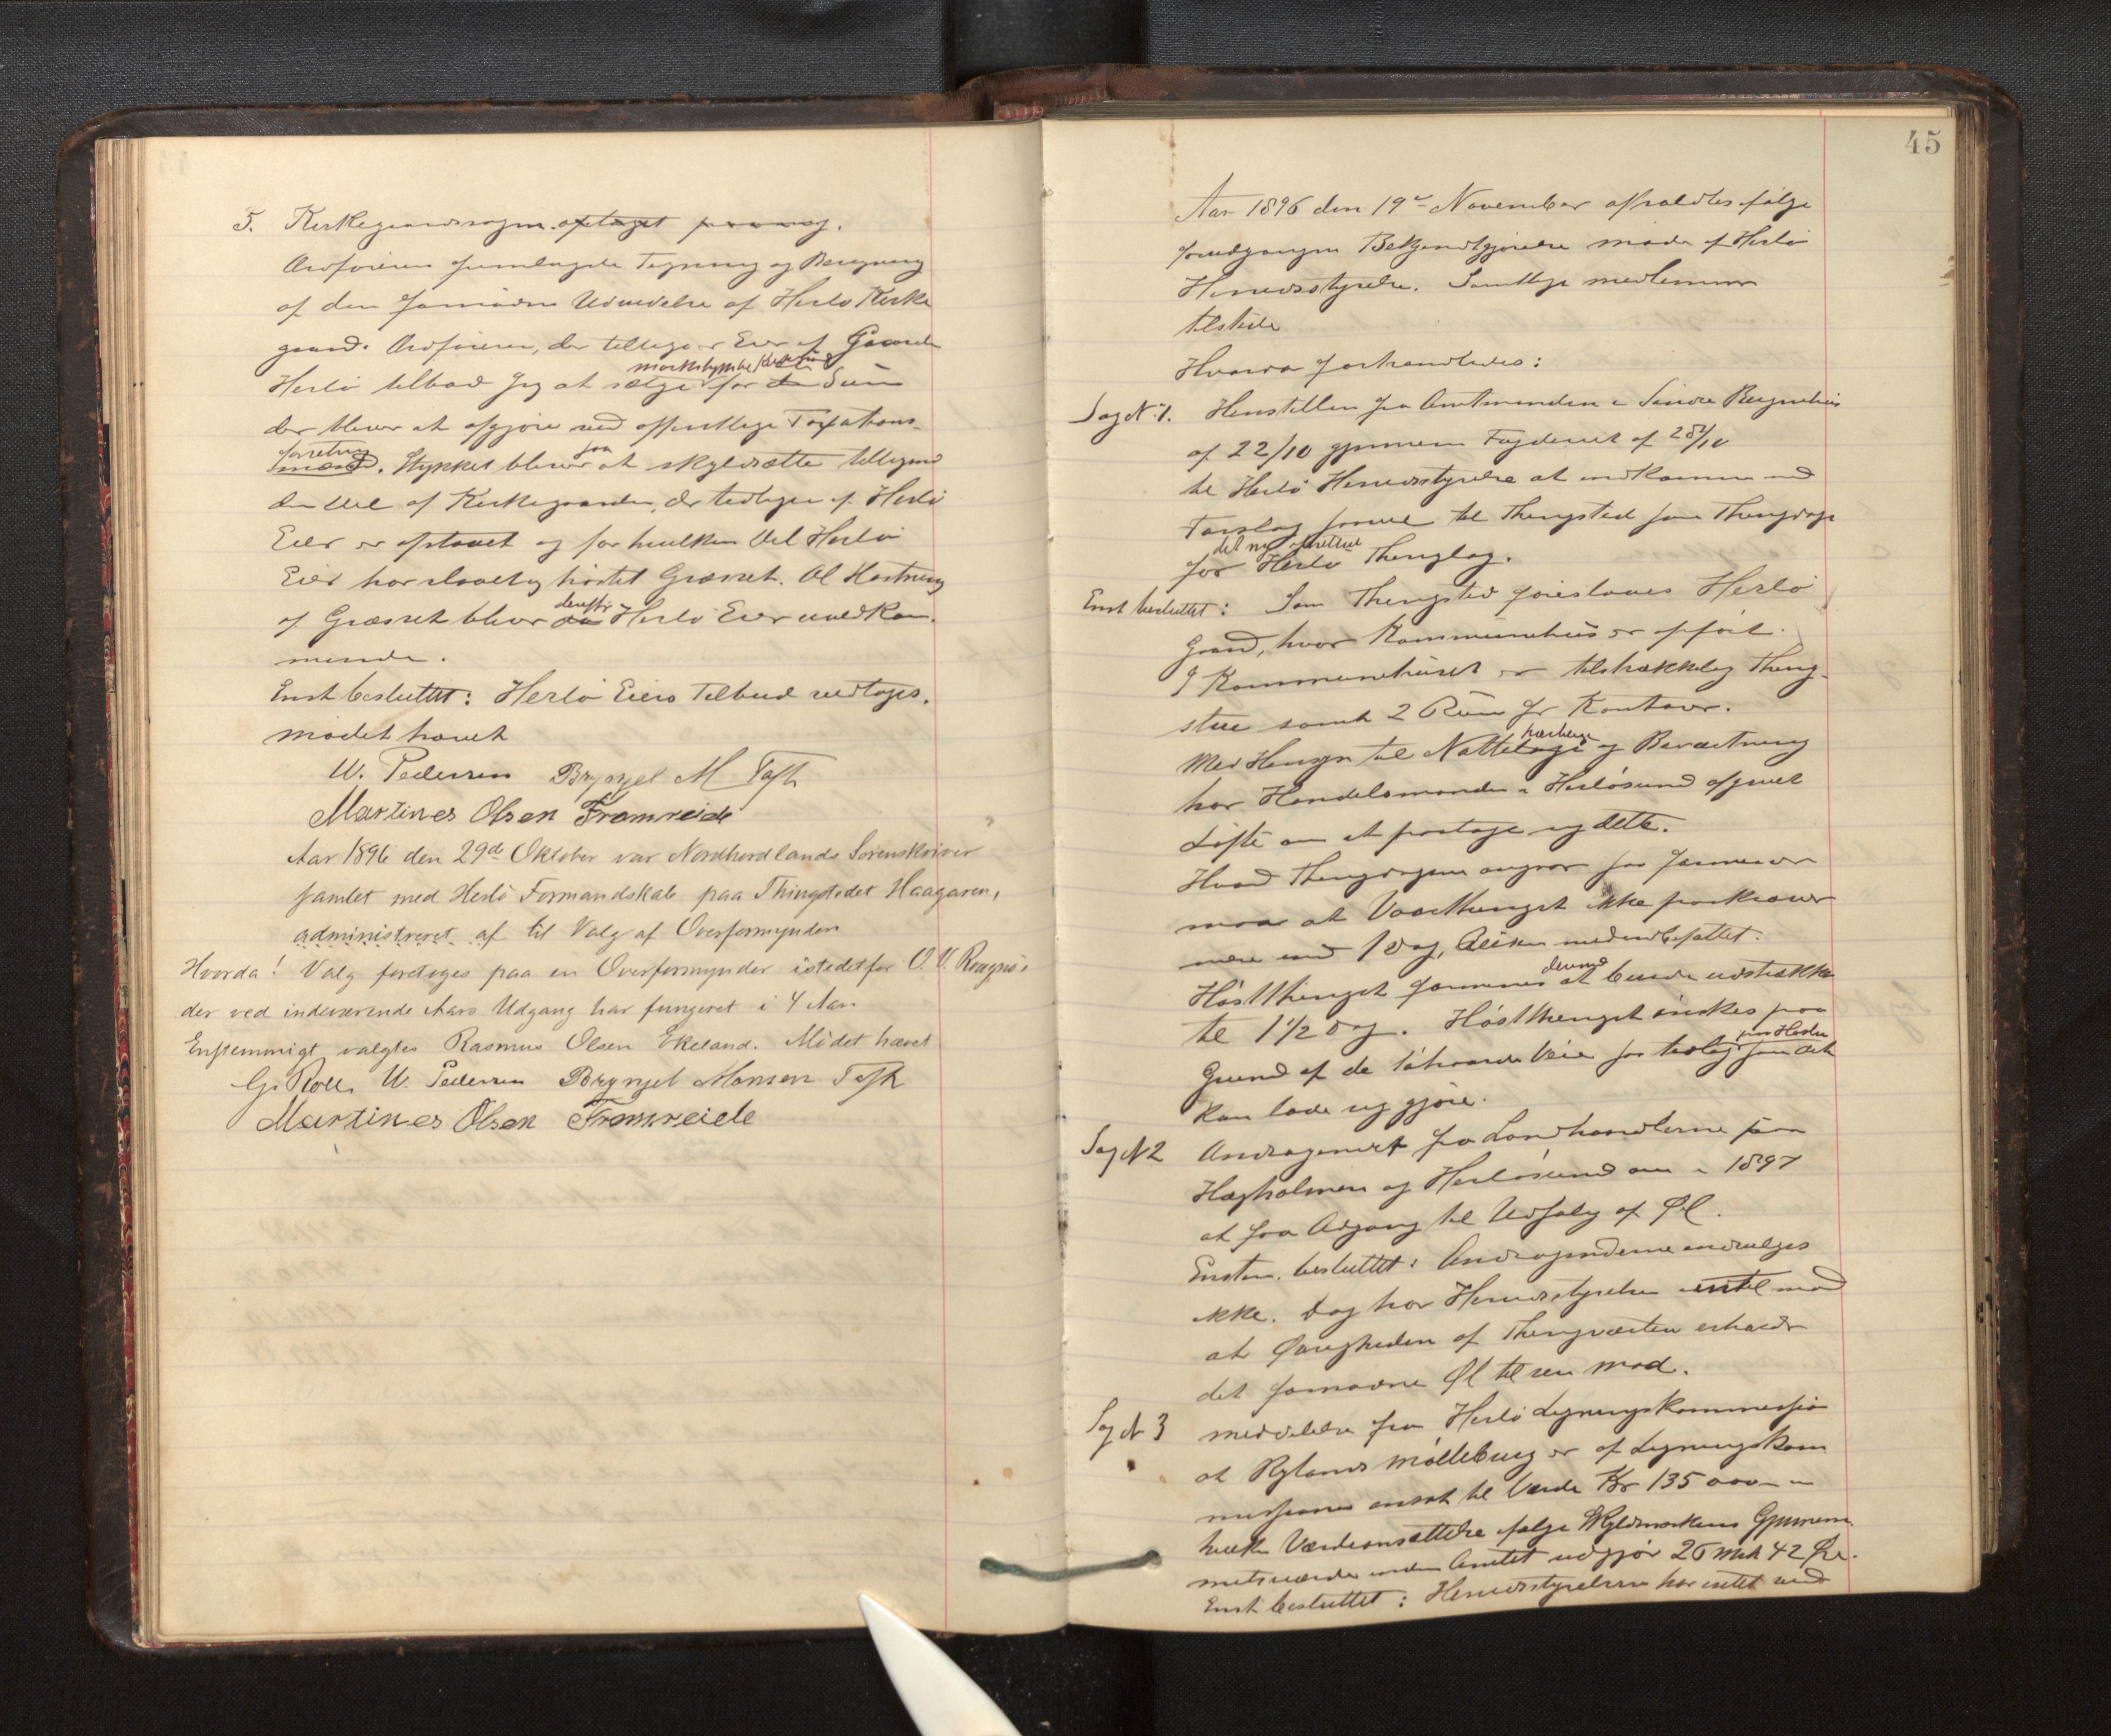 5. Kirkegaardssagen optaget paa
Ordføreren fremlagde Tegning og Beregning
af den fornødne Udvidelse af Herlø Kirke
gaard. Ordføreren, der tillige er Eier af Gaarden
markstykke
Herlø tilbød sig at sælge for Sum
der bliver at afgjøre ved offentlige Taxations-
forretning faa
mænd. Stykket bliver at skyldsætte tilligemed
den Del af Kirkegaarden, der tidligere af Herlø
Eier er afstaaet og for hvilken Del Herlø
Eier har slaaet og høstet Græsset. Al Høstning
derefter
af Græsset bliver Herlø Eier uvedkom-
mende.
Enst besluttet: Herlø Eiers Tilbud vedtages.
Mødet hævet
W. Pedersen Brynjel M Toft
Martines Olsen Fromreide
Aar 1896 den 29de Oktober var Nordhordlands Sorenskriver
samlet med Herlø Formandskab paa Thingstedet Haagaren,
administreret af til Valg af Overformynder
Hvorda! Valg foretoges paa en Overformynder istedetfor O. V.
der ved indeværende Aars Udgang har fungeret i 4 Aar.
Enstemmigt valgtes Rasmus Olsen Ekeland. Mødet hævet
G. Roll. W. Pedersen Brynjel Monsen Toft
Martines Olsen Fromreide
45
Aar 1896 den 19de November afholdtes ifølge
forudgangen Bekjendtgjørelse møde af Herlø
Herredsstyrelse. Samtlige medlemmer
tilstede
Hvorda forhandledes:
Sag N. 1. Henstillen fra Amtmanden i Søndre Bergenhus
af 22/10 gjennem Fogderiet af 28/10
til Herlø Herredsstyrelse at indkomme med
Forslag saavel til Thingsted som Thingdage
det ny oprettede
for Herlø Thinglag.
Enst besluttet: Som Thingsted foreslaaes Herlø
Gaard, hvor Kommunehus er opført.
I Kommunehuset er tilstrækkelig Thing-
stue samt 2 Rum for Kontorer.
herberge
Med Hensyn til Natteloge og Beværtning
har Handelsmanden i Herløsund afgivet
Løfte om at paatage sig dette.
Hvad Thingdagene angaar saa formener
man at Vaarthinget ikke paakræver
mere end 1 Dag, Reisen medindbefattet.
derimod
Høstthinget formenes at burde udstrækkes
til 1 1/2 Dag. Høstthinget ønskes paa
Grund af de Veie saa tidlig som det
kan lade sig gjøre.
Sag N 2 Andragender fra Landhandlerne paa
Hægholmen og Herløsund om i 1897
at faa Adgang til Udsalg af Øl.
Enstem. besluttet: Andragenderne indvilges
ikke. Dog har Herredsstyrelsen intet mod
at Øvrigheden af Thingværten erholder
det fornødne Øl til sin Mad.
Sag N 3 meddelelse fra Herlø Ligningskommission
at Rylands Møllebrug er af Ligningskom
missionen ansat til Værdi Kr 135 000 -
hvilken Værdiansættelse ifølge Skyldmarkens Gjennem
snitsværdi inden Amtet udgjør 25 Mrk 42 Øre.
Enst besluttet: Herredsstyrelsen har intet mod